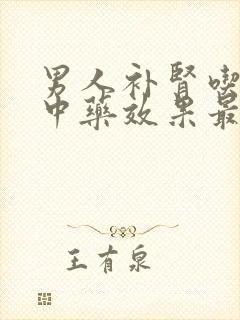 男人补肾喫
中藥效果最
王有泉